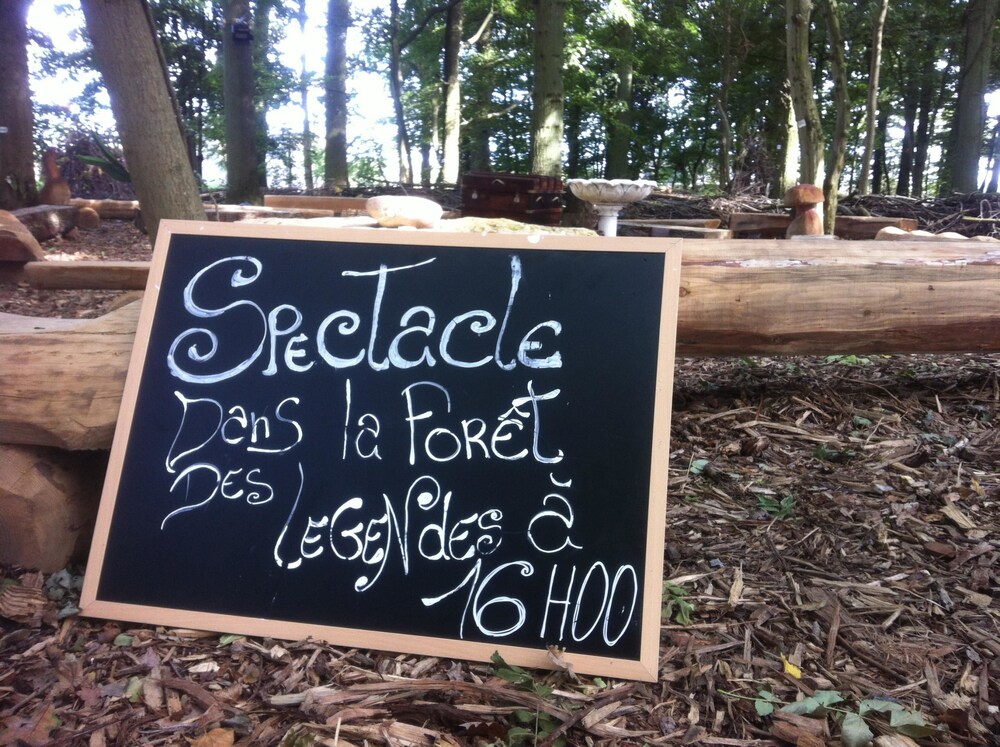 Spectacle
Dans la Forêt
Des Legendes à
16H00